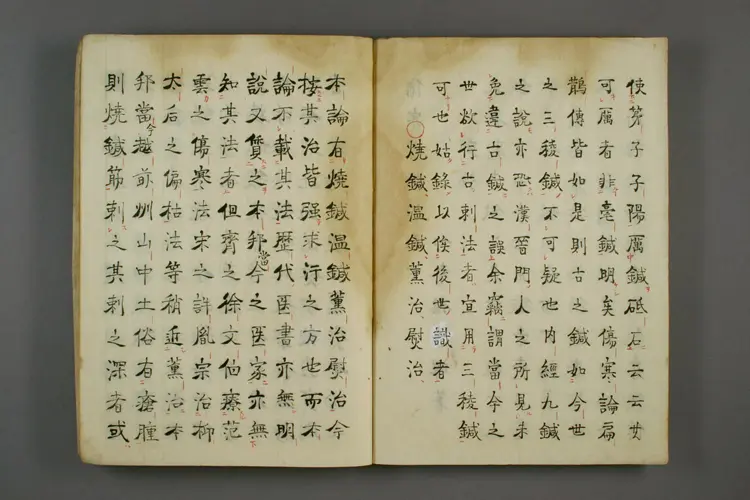 使第子子陽厲鍼砥石云云其
可厲者非毫鍼明矣傷寒論扁
鵲傳皆如是則古之鍼如今世
之三稜鍼不可疑也内經九鍼
之說亦恐漢晉門人之所見未
免違古鍼之誤余竊謂當今之
世欲行古刺法者宜用三稜鍼
可也姑錄以俟後世識者
○燒鍼溫鍼薰治熨治
本論有燒鍼溫鍼薰治熨治今
按其治皆强求汗之方也而本
論不載其法歷代医書亦無明
說又質之本邦當今之医家亦無
知其法者但齊之徐文伯療范
雲之傷寒法宋之許胤宗治柳
太后之偏枯法等稍近薰治本
邦當今越前州山中土俗有瘡腫
則燒鍼筋刺之其刺之深者或